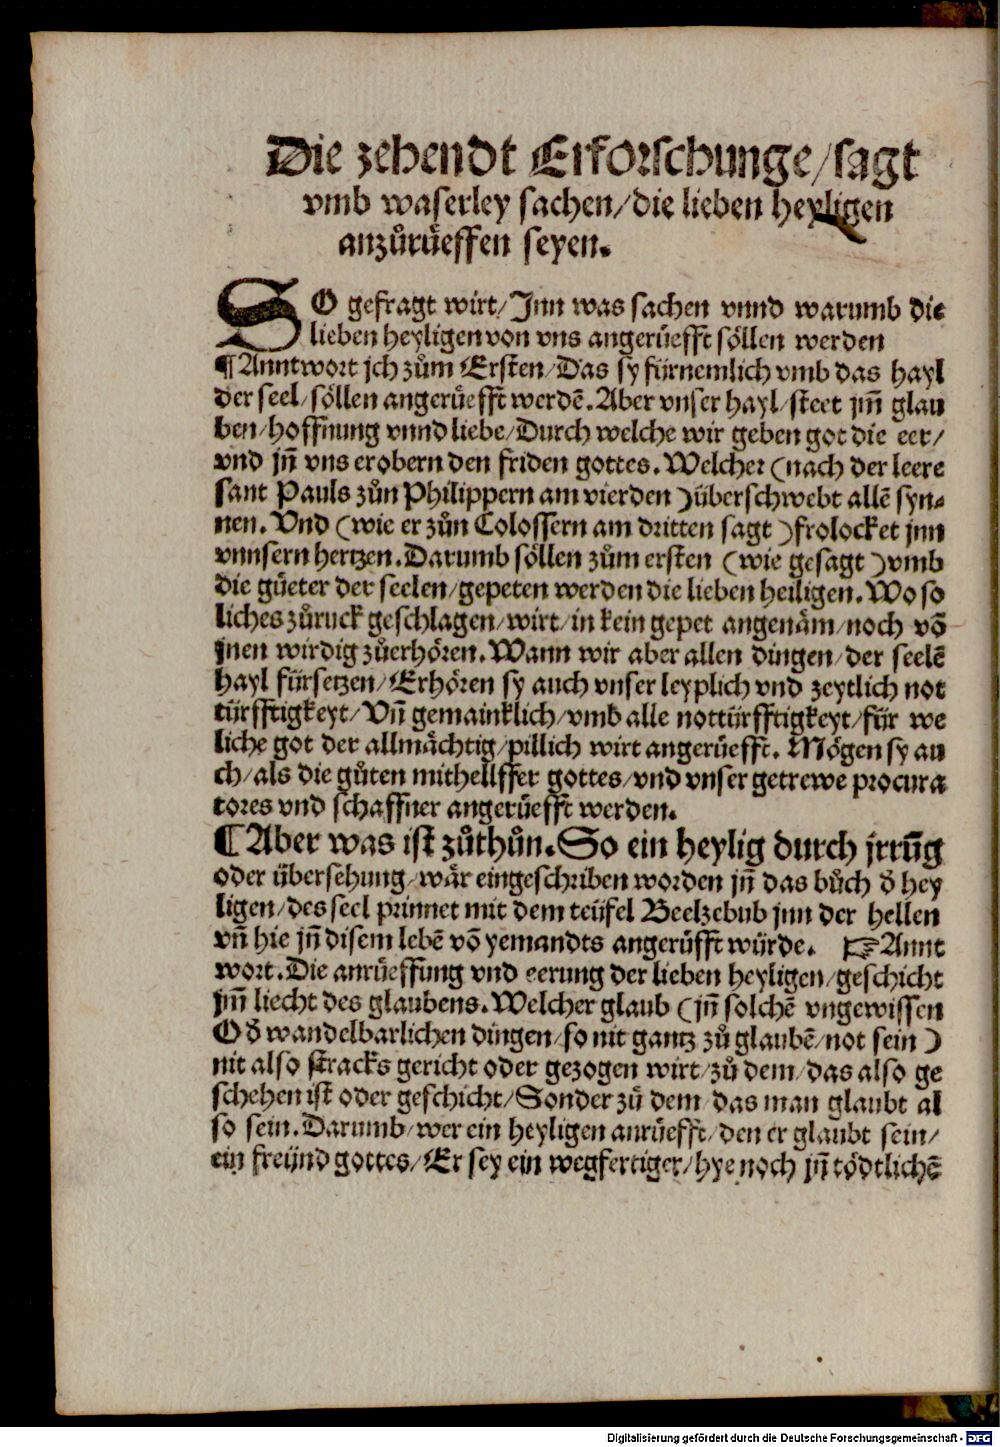 Die zehendt Erforschunge/sagt
vmb waserley sachen/die lieben heyligen
anzůrüeffen seyen.
SO gefragt wirt/Jnn was sachen vnnd warumb die
lieben heyligen von vns angerüefft söllen werden
¶Anntwort jch zům Ersten/Das sy fürnemlich vmb das hayl
der seel/söllen angerüefft werdē.Aber vnser hayl/steet jm̄ glau
ben/hoffnung vnnd liebe/Durch welche wir geben got die eer/
vnd jn̄ vns erobern den friden gottes.Welcher (nach der leere
sant Pauls zůn Philippern am vierden )überschwebt allē syn⸗
nen.Vnd (wie er zůn Colossern am dritten sagt )frolocket jnn
vnnsern hertzen.Darumb söllen zům ersten (wie gesagt )vmb
die güeter der seelen/gepeten werden die lieben heiligen.Wo so
liches zůruck geschlagen/wirt/in kein gepet angenäm/noch vō
jnen wirdig zůerhören.Wann wir aber allen dingen/der seelē
hayl fürsetzen/Erhören sy auch vnser leyplich vnd zeytlich not
türfftigkeyt/Vn̄ gemainklich/vmb alle nottürfftigkeyt/für we
liche got der allmächtig/pillich wirt angerüefft. Mögen sy au
ch/als die gůten mithellffer gottes/vnd vnser getrewe procura
tores vnd schaffner angerüefft werden.
¶Aber was ist zůthůn.So ein heylig durch jrrūg
oder übersehung/wär eingeschriben worden jn̄ das bůch đ hey
ligen/des seel prinnet mit dem teüfel Beelzebub jnn der hellen
vn̄ hie jn̄ disem lebē vō yemandts angerüfft würde. ☞Annt
wort.Die anrüeffung vnd eerung der lieben heyligen/geschicht
jm̄ liecht des glaubens.Welcher glaub (jn̄ solchē vngewissen
Ođ wandelbarlichen dingen/so nit gantz zů glaubē/not sein )
nit also stracks gericht oder gezogen wirt/zů dem/das also ge
schehen ist oder geschicht/Sonder zů dem/das man glaubt al
so sein.Darumb/wer ein heyligen anrüefft/den er glaubt sein/
ein freünd gottes/Er sey ein wegfertiger/hye noch jn̄ tödtlichē
Digitalisierung gefördert durch die Deutsche Forschungsgemeinschaft - DFG